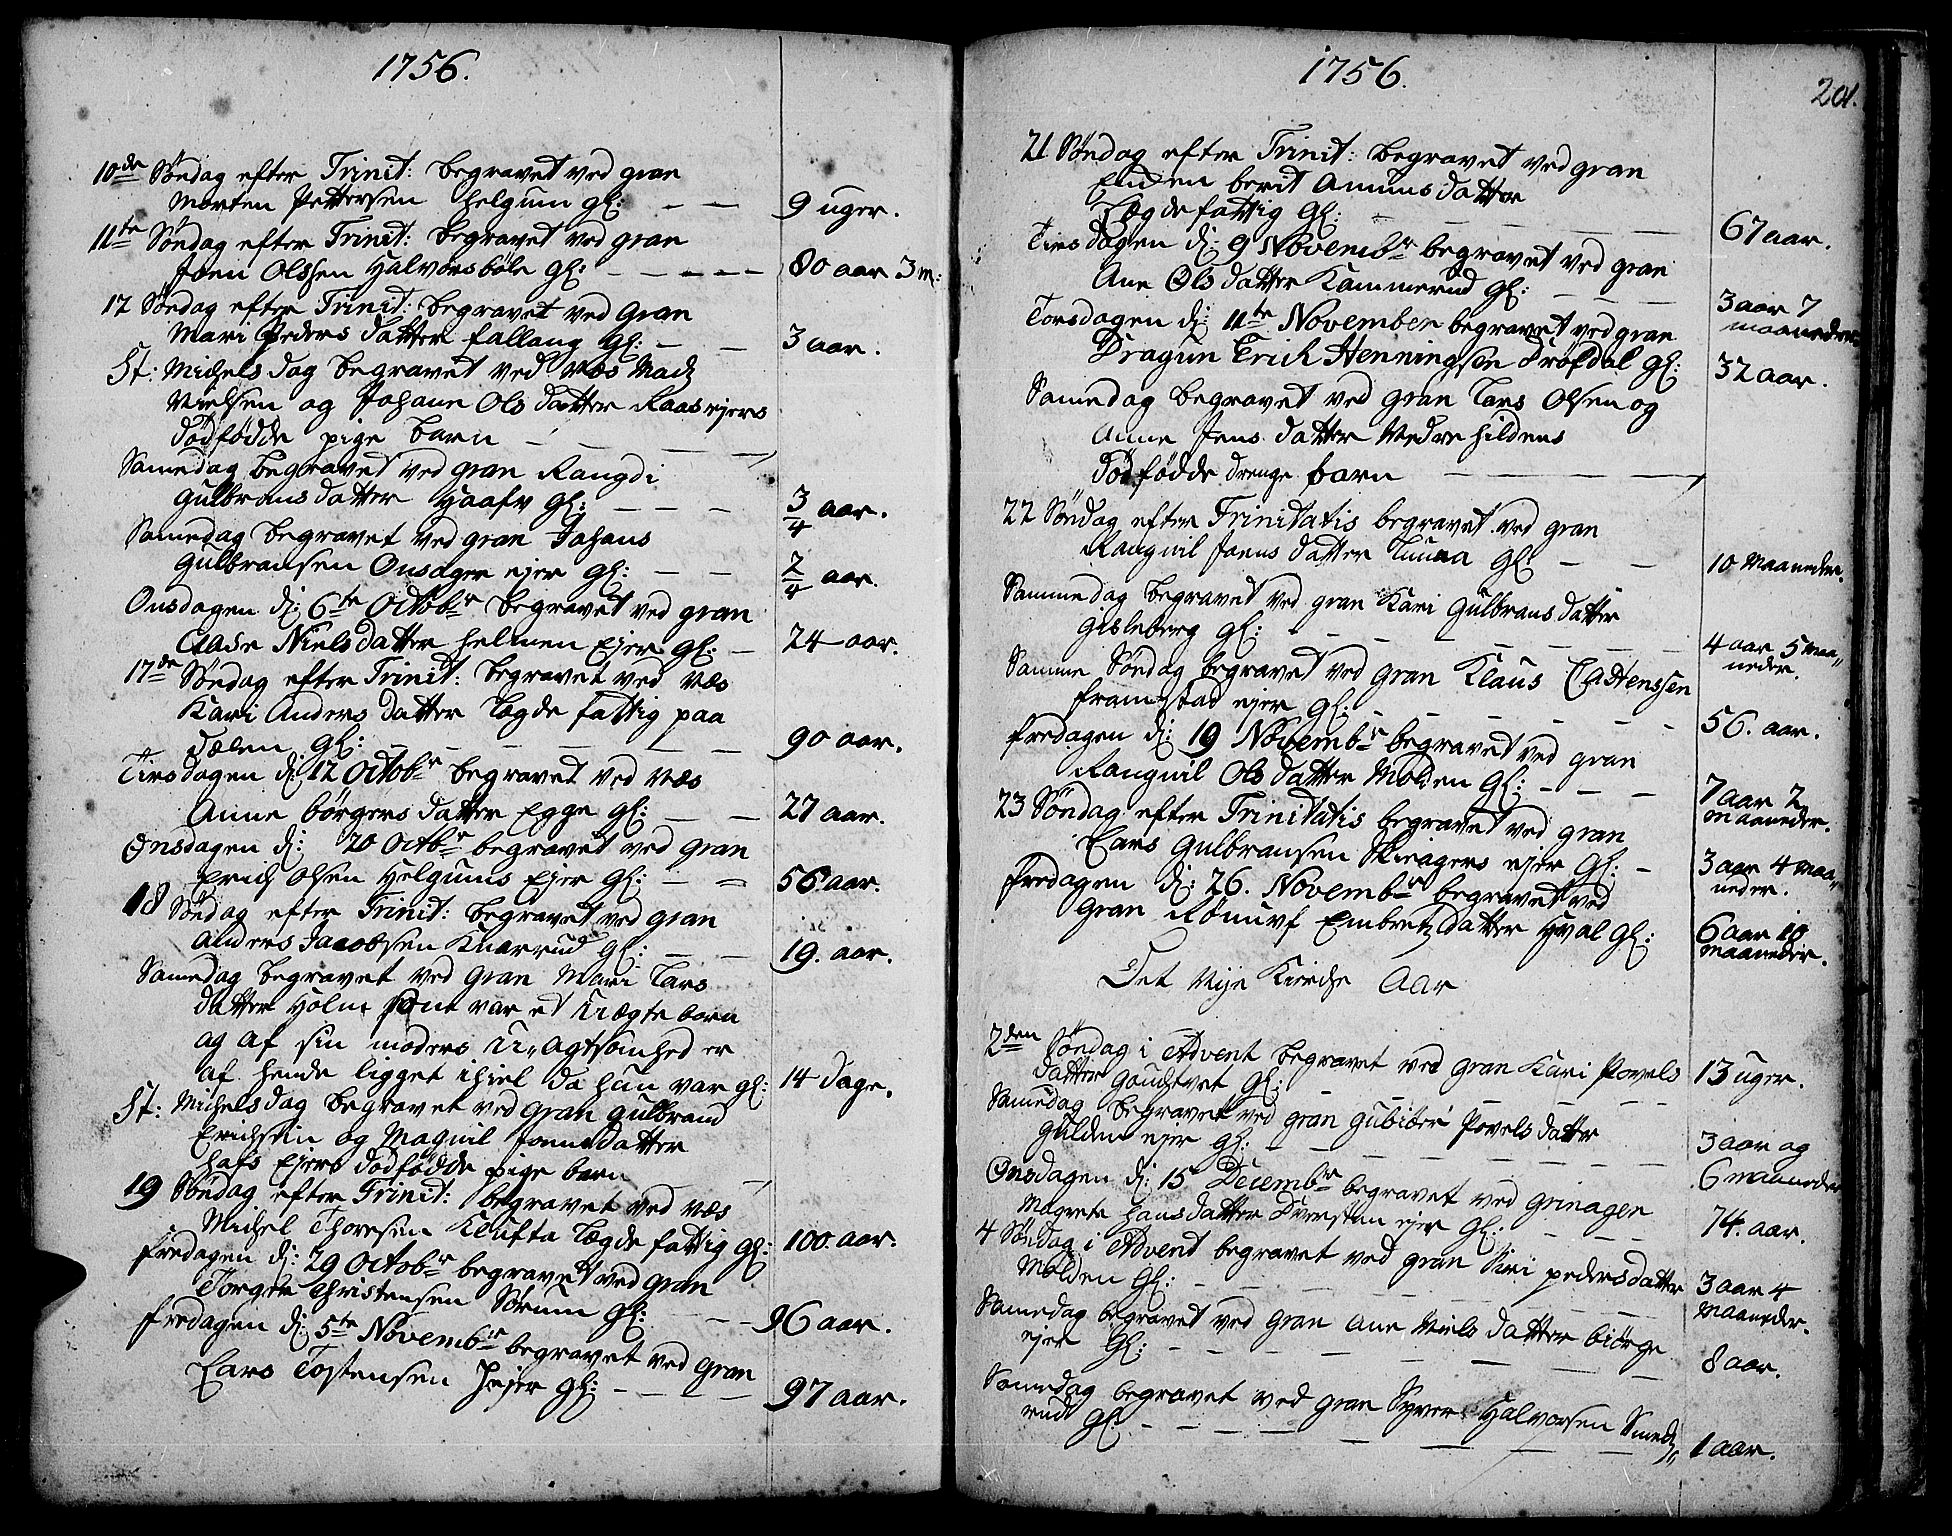 1756.
10de Søndag efter Trinit: begravet ved gran
Morten Pettersen helgum gl: — — 9 uger.
11te Søndag efter Trinit: begravet ved gran
Joen Olssen Halvorsbøle gl: — — — — — 80 aar 3 m:
12 Søndag efter Trinit: begravet ved gran
Mari Peders datter fallang gl: — — 3 aar.
St: Michels dag begravet ved Næs Madz
Nielsen og Johane Ols datter Raasejers
dødfødde pige barn — — — — —
Samedag begravet ved gran Rangdi
gulbrans datter Haafv gl: — — — 3/4 aar.
Samedag begravet ved gran Johans
gulbransen Onsager ejer gl: — — 2/4 aar.
Onsdagen d: 6te Octobr begravet ved gran
Aase Niels datter helmen Ejer gl: — 24 aar.
17de Søndag efter Trinit: begravet ved Næs
Kari Anders datter Lægde fattig paa
dælen gl: — — — — — — 90 aar.
Tirsdagen d: 12 Octobr begravet ved Næs
Anne børgers datter Egge gl: — — 27 aar.
Onsdagen d: 20 Octbr begravet ved gran
Erich Olsen Helgums Ejer gl: — — 56 aar.
18 Søndag efter Trinit: begravet ved gran
Anders Jacobsen Knarrud gl: — — 19. aar.
Samedag begravet ved gran Mari Lars
datter Holm som var et Uægte barn
og af sin moders U,,agtsomhed er
af hende ligget ihiel da hun var gl: 14 dage.
St: Michelsdag begravet ved gran gulbrand
Erichsen og Magnil Jonns datter
hafs Ejers dødfødde pige barn
19 Søndag efter Trinit: begravet ved Næs
Michel Thoresen Klufta Lægde fattig gl: 100. aar.
fredagen d: 29 Octobr begravet ved gran
Torger Christensen Sørum gl: — — 96 aar.
fredagen d: 5te Novembr begravet ved gran
Lars Tostensen Hejer gl: — — — — 97 aar.
1756.
201.
21 Søndag efter Trinit: begravet ved gran
Enken berit Amuns datter
Lægde fattig gl: — — — — — 67 aar.
Tirsdagen d: 9 Novembr begravet ved gran
Ane Ols datter Kammerud gl: — — — 3 aar 7
maaneder
Torsdagen d: 11te November begravet ved gran
Dragun Erich Henningsen Trøfdal gl: 32 aar.
Samedag begravet ved gran Lars Olsen og
Anne Jens datter Nedre hildens
Dødfødde drenge barn — — — — —
22 Søndag efter Trinitatis begravet ved gran
Rangnil Joens datter gl: — — 10 Maaneder.
Sammedag begravet ved gran Kari gulbrans datter
gisleberg gl: — — — — — — 4 aar 5 maa,,
neder.
Samme Søndag begravet ved gran Klaus Cattenssen
framstad ejer gl: — — — — — — 56. aar.
fredagen d: 19 Novembr begravet ved gran
Rangnil Ols datter Molden gl: — — — 7 aar 2
maaneder.
23 Søndag efter Trinitatis begravet ved gran
Lars gulbransen Skiragers ejer gl: — 3 aar 4 maa,,
neder.
fredagen d: 26. Novembr begravet ved
gran Rønnvf Embretz datter Hval gl: 6 aar 10
maaneder.
Det Nye Kirche Aar
2den Søndag i Advent begravet ved gran Kari Povels
datter gaudtvet gl: — — — — — 13 uger.
Samedag begravet ved gran gubiær Povels datter
gulden ejer gl: — — — — — — 3 aar og
6 maaneder
Onsdagen d: 15 Decembr begravet ved grinager
Magrete hansdatter Dversten ejer gl: — — — 74. aar.
4 Søndag i Advent begravet ved gran Kiri peders datter
Molden gl: — — — — — — 3 aar 4
maaneder.
Samedag begravet ved gran Ane Niels datter biørge
ejer gl: — — — — — — 8 aar.
Samedag begravet ved gran Syver Halvorsen Smedz,,
rud gl: — — — — — — 1 aar.